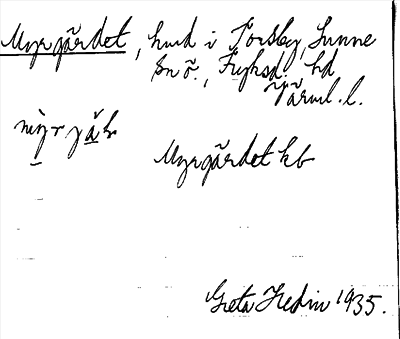 Myrgärdet, hmd i Torsby, Sunne
sn ö., Fryksd. hd
Värml. l.
Myrgärdet kb
Greta Hedin 1935.